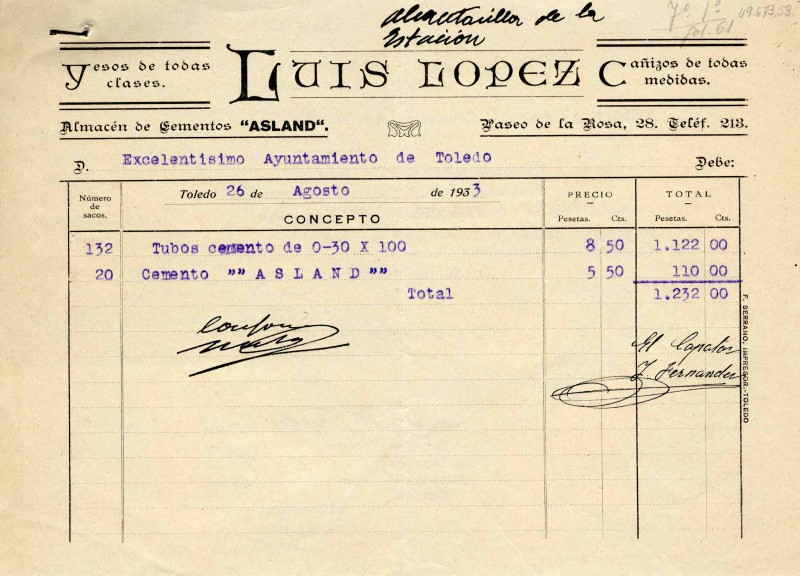 Alcantarilla de la
Estación
7º 1º
fol. 61
49.673,53
Yesos de todas
clases.
LUIS LOPEZ
Cañizos de todas
medidas.
Almacén de Cementos "ASLAND".
Paseo de la Rosa, 28. Teléf. 213.
D. Excelentisimo Ayuntamiento de Toledo Debe:
Número
de
sacos.
Toledo 26 de Agosto de 1933
CONCEPTO
PRECIO
Pesetas. Cts.
TOTAL
Pesetas. Cts.
132 Tubos cemento de 0-30 X 100 8 50 1.122 00
20 Cemento "" A S L A N D "" 5 50 110 00
Total 1.232 00
El Capataz
F. Fernandez
F. SERRANO, IMPRESOR.-TOLEDO